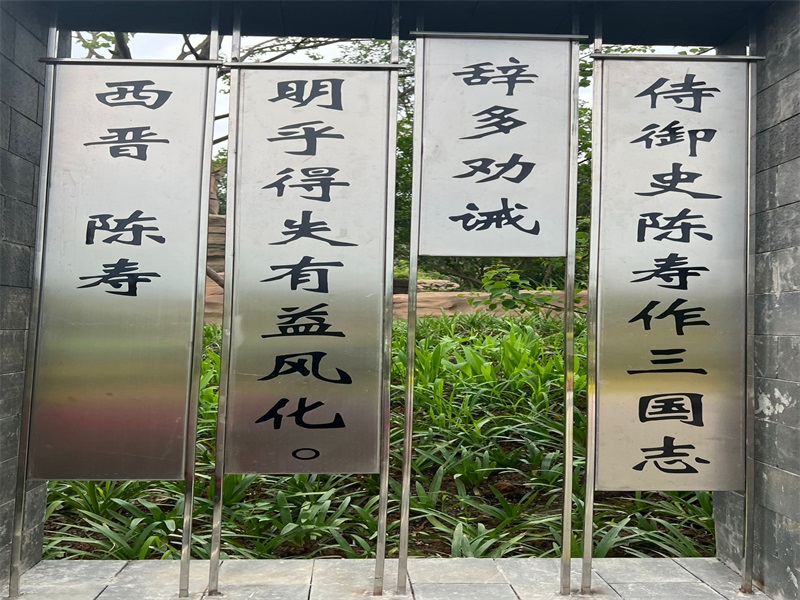 侍御史陈寿作三国志
辞多劝诫
明乎得失有益风化。
西晋 陈寿